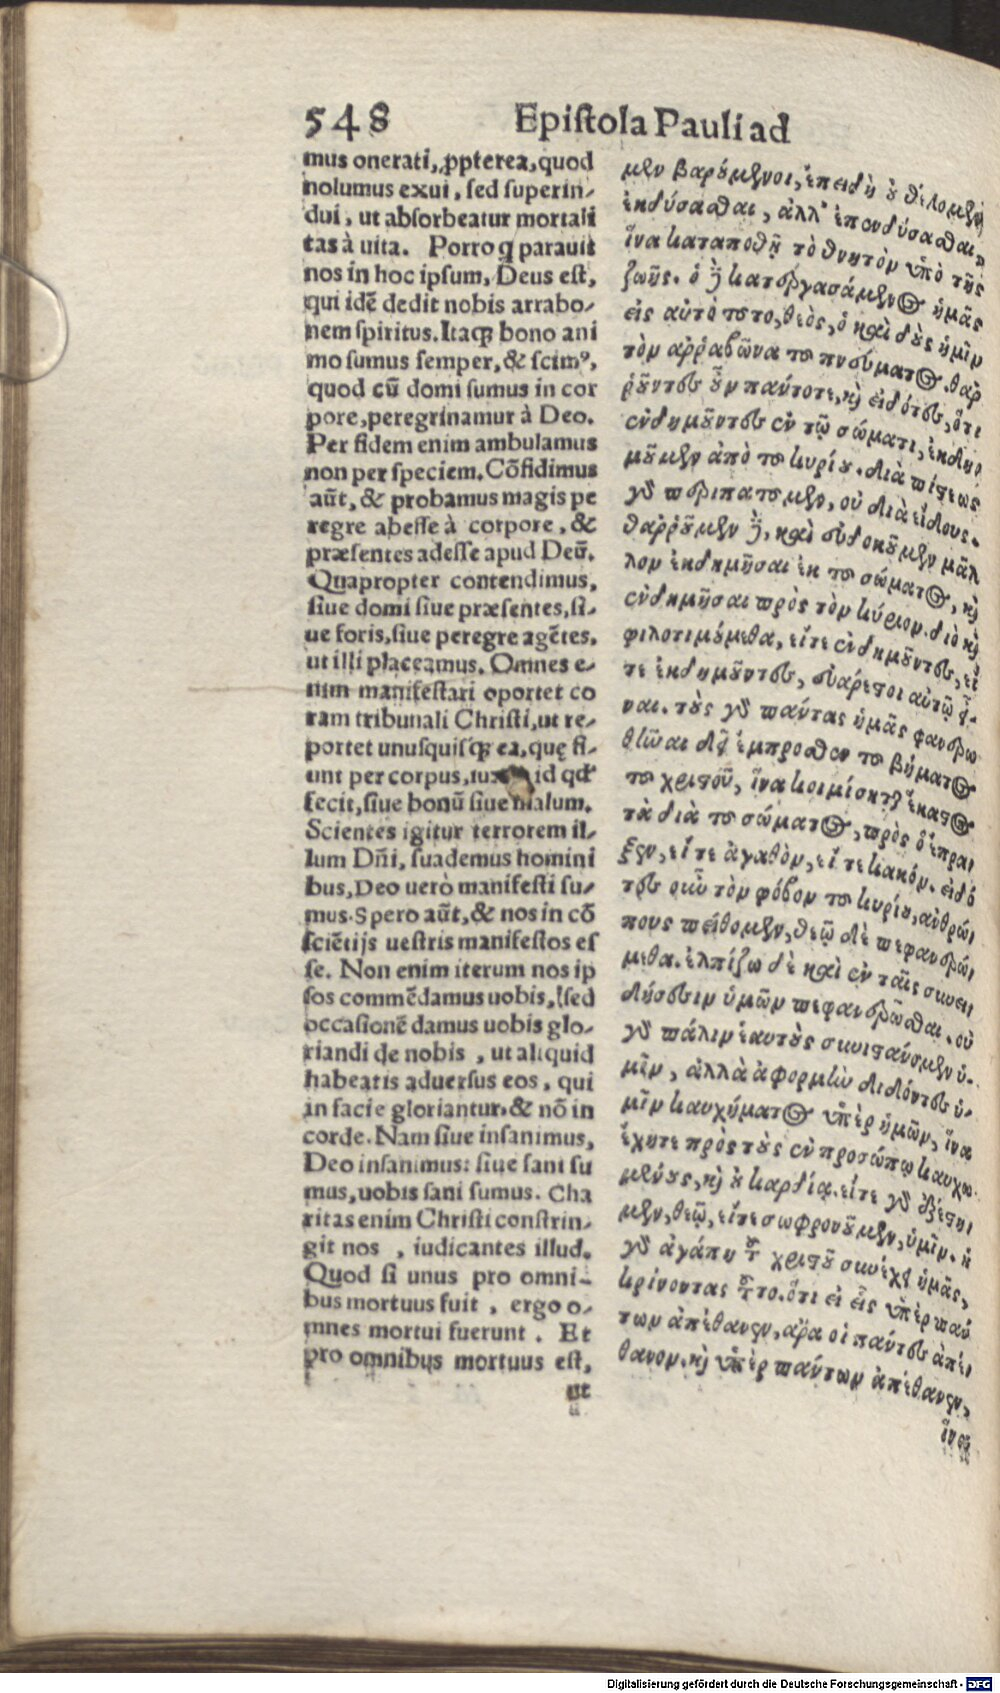 548 Epistola Pauli ad
mus onerati, ꝓpterea, quod
nolumus exui, sed superin-
dui, ut absorbeatur mortali
tas à uita. Porro q parauit
nos in hoc ipsum, Deus est,
qui idē dedit nobis arrabo-
nem spiritus. Itaqꝫ bono ani
mo sumus semper, & scimꝰ,
quod cū domi sumus in cor
pore, peregrinamur à Deo.
Per fidem enim ambulamus
non per speciem. Cōfidimus
aūt, & probamus magis pe
regre abesse à corpore, &
præsentes adesse apud Deū.
Quapropter contendimus,
siue domi siue præsentes, si-
ue foris, siue peregre agētes,
ut illi placeamus. Omnes e-
nim manifestari oportet co
ram tribunali Christi, ut re-
portet unusquisqꝫ ea, quę fi-
unt per corpus, id qd
fecit, siue bonū siue malum.
Scientes igitur terrorem il-
lum Dñi, suademus homini
bus, Deo uerò manifesti su-
mus. Spero aūt, & nos in cō
sciētijs uestris manifestos es
se. Non enim iterum nos ip
sos commēdamus uobis, sed
occasionē damus uobis glo-
riandi de nobis, ut aliquid
habeatis aduersus eos, qui
in facie gloriantur, & nō in
corde. Nam siue insanimus,
Deo insanimus: siue sani su
mus, uobis sani sumus. Cha
ritas enim Christi constrin-
git nos, iudicantes illud.
Quod si unus pro omni-
bus mortuus fuit, ergo o-
mnes mortui fuerunt. Et
pro omnibus mortuus est,
ut
μεν βαρούμενοι, ἐπειδὴ οὐ θέλομεν
ἐκδύσασθαι, ἀλλ' ἐπενδύσασθαι,
ἵνα καταποθῇ τὸ θνητὸν ὑπὸ τῆς
ζωῆς. ὁ δὲ κατεργασάμενος ἡμᾶς
εἰς αὐτὸ τοῦτο, θεὸς, ὁ καὶ δοὺς ἡμῖν
τὸν ἀῤῥαβῶνα τοῦ πνεύματος. θαῤ
ῥοῦντες οὖν πάντοτε, καὶ εἰδότες, ὅτι
ἐνδημοῦντες ἐν τῷ σώματι, ἐκδη
μοῦμεν ἀπὸ τοῦ κυρίου. διὰ πίστεως
γὰρ περιπατοῦμεν, οὐ διὰ εἴδους.
θαῤῥοῦμεν δὲ, καὶ εὐδοκοῦμεν μᾶλ
λον ἐκδημῆσαι ἐκ τοῦ σώματος, καὶ
ἐνδημῆσαι πρὸς τὸν κύριον. διὸ καὶ
φιλοτιμούμεθα, εἴτε ἐνδημοῦντες, εἴ
τε ἐκδημοῦντες, εὐάρεστοι αὐτῷ εἶ-
ναι. τοὺς γὰρ πάντας ἡμᾶς φανερω
θῆναι δεῖ ἔμπροσθεν τοῦ βήματος
τοῦ χριστοῦ, ἵνα κομίσηται ἕκαστος
τὰ διὰ τοῦ σώματος, πρὸς ἃ ἔπρα
ξεν, εἴτε ἀγαθὸν, εἴτε κακόν. εἰδό
τες οὖν τὸν φόβον τοῦ κυρίου, ἀνθρώ
πους πείθομεν, θεῷ δὲ πεφανερώ
μεθα. ἐλπίζω δὲ καὶ ἐν ταῖς συνει
δήσεσιν ὑμῶν πεφανερῶσθαι. οὐ
γὰρ πάλιν ἑαυτοὺς συνιστάνομεν ὑ-
μῖν, ἀλλὰ ἀφορμὴν διδόντες ὑ-
μῖν καυχήματος ὑπὲρ ἡμῶν, ἵνα
ἔχητε πρὸς τοὺς ἐν προσώπῳ καυχω
μένους, καὶ οὐ καρδίᾳ. εἴτε γὰρ ἐξέστη
μεν, θεῷ, εἴτε σωφρονοῦμεν, ὑμῖν. ἡ
γὰρ ἀγάπη τοῦ χριστοῦ συνέχει ἡμᾶς,
κρίνοντας τοῦτο. ὅτι εἰ εἷς ὑπὲρ πάν
των ἀπέθανεν, ἄρα οἱ πάντες ἀπέ
θανον. καὶ ὑπὲρ πάντων ἀπέθανεν,
ἵνα
Digitalisierung gefördert durch die Deutsche Forschungsgemeinschaft - DFG